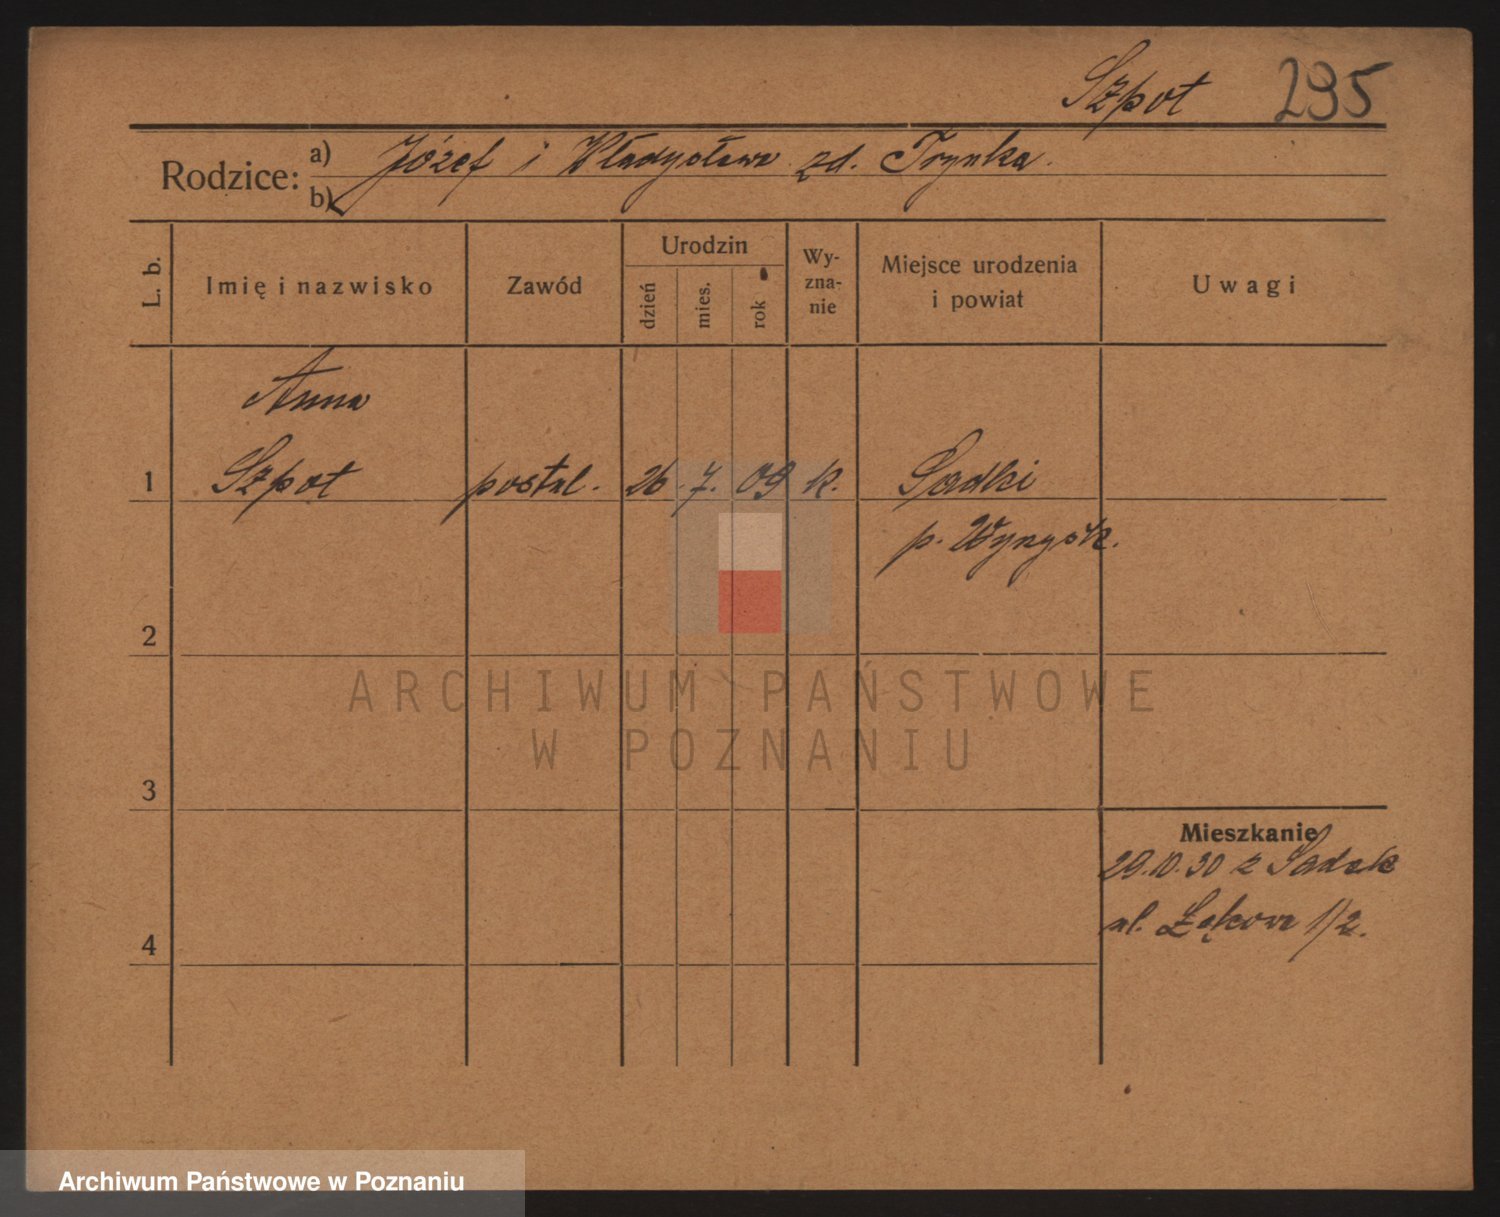 Szpot 295
Rodzice: a) Józef i Władysława zd. Trynka.
b)
L. b. Imię i nazwisko Zawód Urodzin dzień mies. rok Wy-zna-nie Miejsce urodzenia i powiat Uwagi
Anna
1 Szpot postal. 26. 7. 09 k. Sadki
p. Wyrzysk.
2
ARCHIWUM PAŃSTWOWE
W POZNANIU
3
Mieszkanie
29.10.30 z Sadek
4 ul. Łąkowa 1/2.
Archiwum Państwowe w Poznaniu